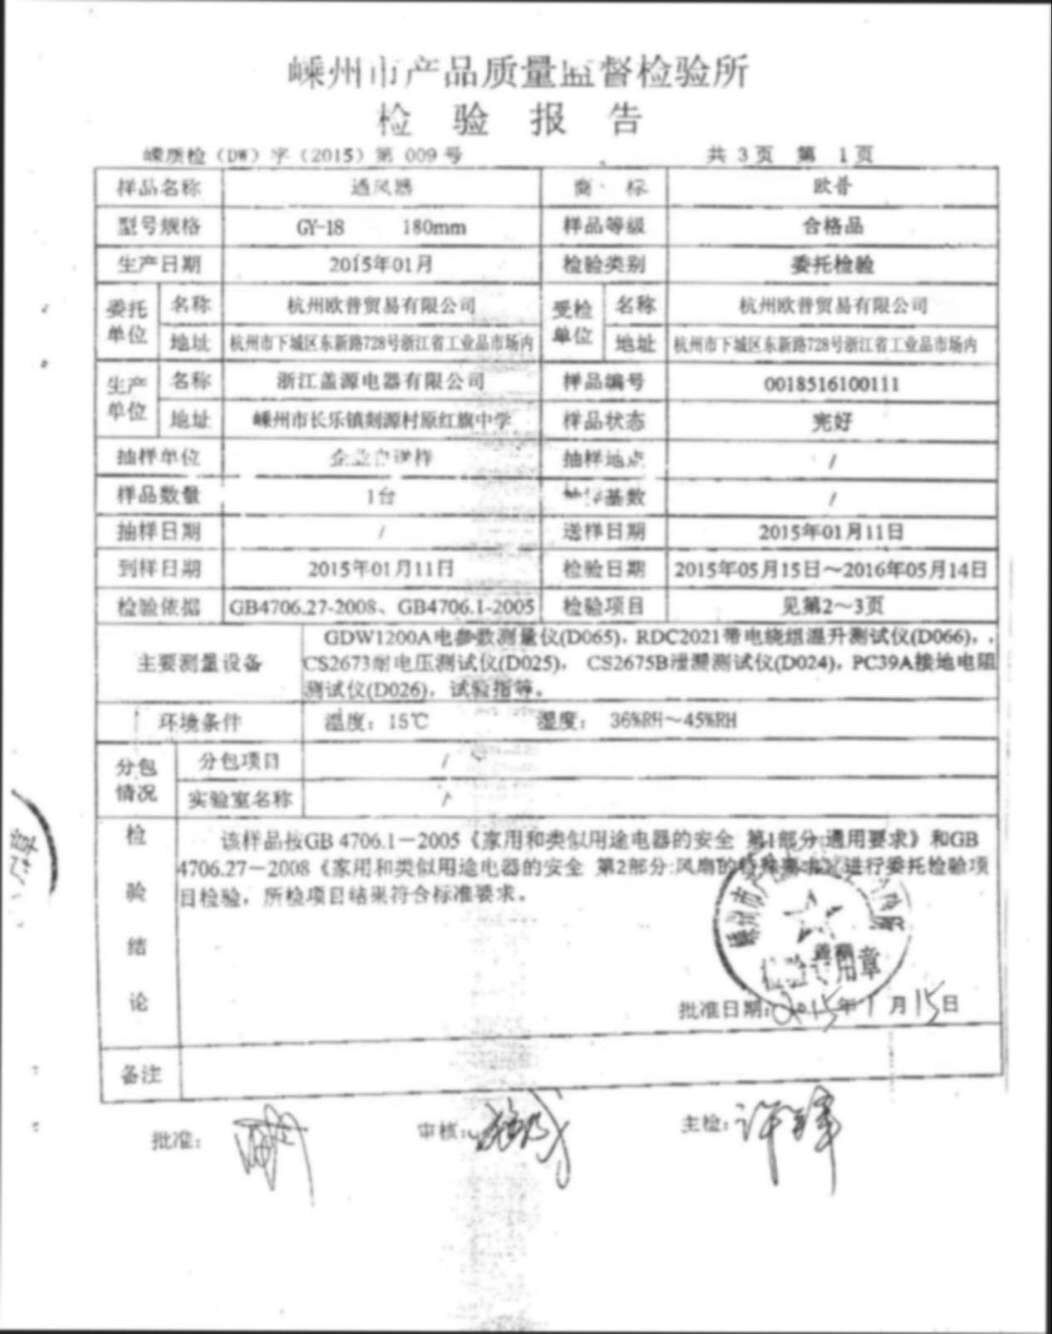 嵊州市产品质量监督检验所
检 验 报 告
嵊质检（DW）字（2015）第 009 号 共 3页 第 1页
样品名称 通风器 商 标 欧普
型号规格 GY-18 180mm 样品等级 合格品
生产日期 2015年01月 检验类别 委托检验
委托单位 名称 杭州欧普贸易有限公司 受检单位 名称 杭州欧普贸易有限公司
地址 杭州市下城区东新路728号浙江省工业品市场内 地址 杭州市下城区东新路728号浙江省工业品市场内
生产单位 名称 浙江盖源电器有限公司 样品编号 0018516100111
地址 嵊州市长乐镇剡源村原红旗中学 样品状态 完好
抽样单位 企业自送样 抽样地点 /
样品数量 1台 基数 /
抽样日期 / 送样日期 2015年01月11日
到样日期 2015年01月11日 检验日期 2015年05月15日～2016年05月14日
检验依据 GB4706.27-2008、GB4706.1-2005 检验项目 见第2～3页
主要测量设备 GDW1200A电参数测量仪(D065)，RDC2021带电绕组温升测试仪(D066)，
CS2673耐电压测试仪(D025)， CS2675B泄漏测试仪(D024)，PC39A接地电阻
测试仪(D026)，试验指等。
环境条件 温度：15℃ 湿度： 36%RH～45%RH
分包情况 分包项目 /
实验室名称 /
检验结论 该样品按GB 4706.1－2005《家用和类似用途电器的安全 第1部分:通用要求》和GB
4706.27－2008《家用和类似用途电器的安全 第2部分:风扇的特殊要求》进行委托检验项
目检验，所检项目结果符合标准要求。
嵊州市产
盖章
专用章
批准日期:2015年1月15日
备注
批准： 审核： 主检：许